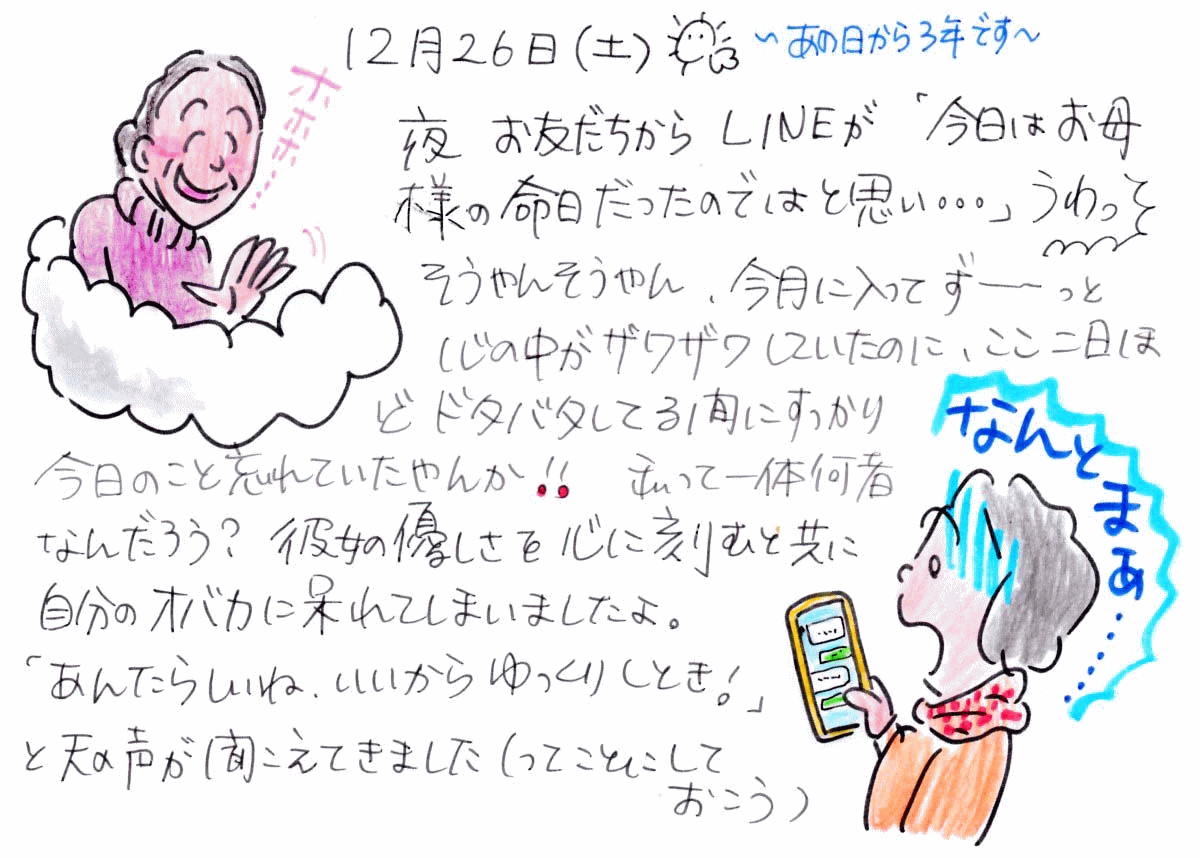 12月26日(土) ~あの日から3年です~
ホホホ…
夜 お友だちから LINEが 「今日はお母
様の命日だったのではと思い…」うわっそ
そうやんそうやん、今月に入ってずーーっと
心の中がザワザワしていたのに、ここ二日ほ
どドタバタしてる間にすっかり
今日のこと忘れていたやんか!! 私って一体何者
なんだろう? 彼女の優しさを心に刻むと共に
自分のオバカに呆れてしまいましたよ。
「あんたらしいね、いいからゆっくりしとき!」
と天の声が聞こえてきました(ってことにして
おこう)
なんとまぁ……